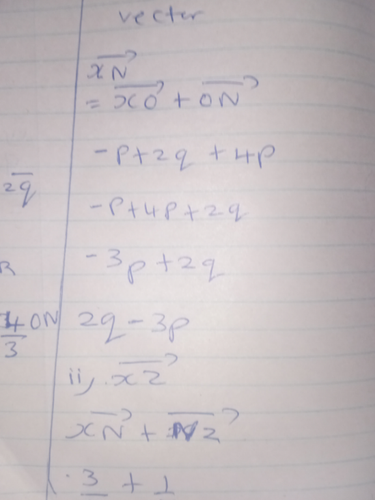 vector
→XN
= →XO + →ON
-p+2q +4p
2q̅
-p+4p+2q
R
-3p+2q
4/3 ON
2q-3p
ii, →XZ
→XN + →NZ
3 + 1